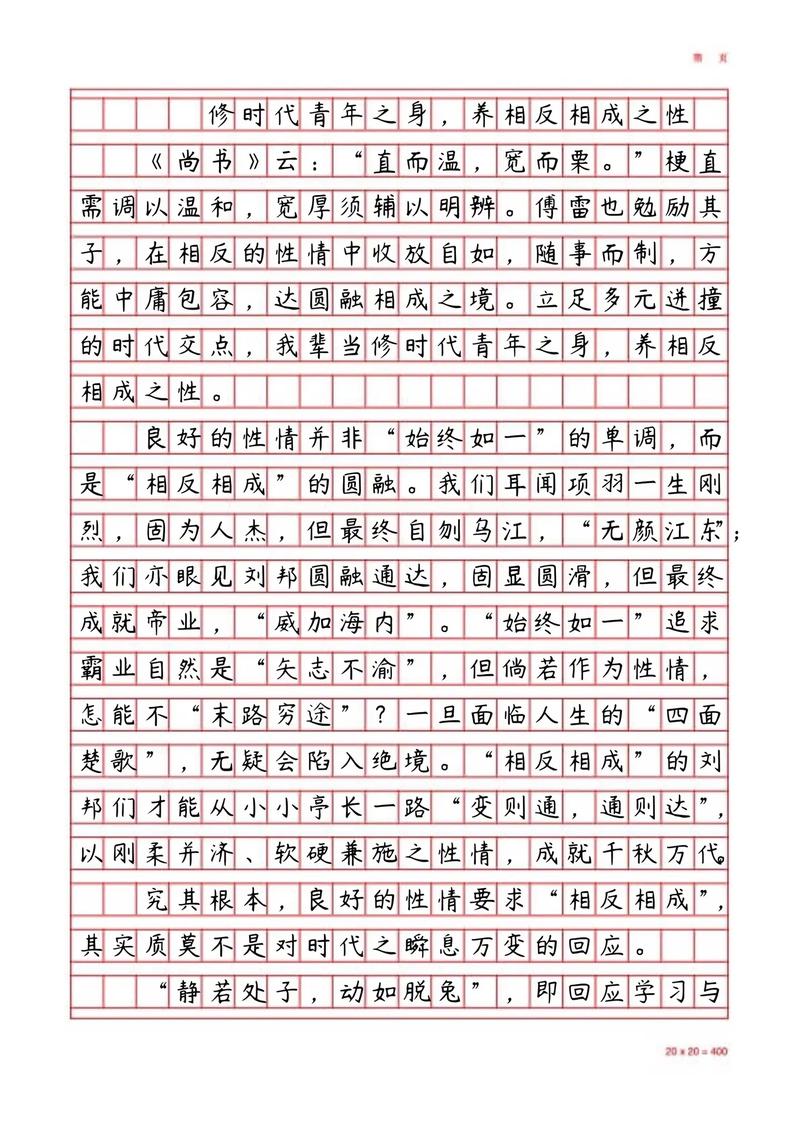 第 页
修时代青年之身，养相反相成之性
《尚书》云：“直而温，宽而栗。”梗直
需调以温和，宽厚须辅以明辨。傅雷也勉励其
子，在相反的性情中收放自如，随事而制，方
能中庸包容，达圆融相成之境。立足多元迸撞
的时代交点，我辈当修时代青年之身，养相反
相成之性。
良好的性情并非“始终如一”的单调，而
是“相反相成”的圆融。我们耳闻项羽一生刚
烈，固为人杰，但最终自刎乌江，“无颜江东”；
我们亦眼见刘邦圆融通达，固显圆滑，但最终
成就帝业，“威加海内”。“始终如一”追求
霸业自然是“矢志不渝”，但倘若作为性情，
怎能不“末路穷途”？一旦面临人生的“四面
楚歌”，无疑会陷入绝境。“相反相成”的刘
邦们才能从小小亭长一路“变则通，通则达”，
以刚柔并济、软硬兼施之性情，成就千秋万代。
究其根本，良好的性情要求“相反相成”，
其实质莫不是对时代之瞬息万变的回应。
“静若处子，动如脱兔”，即回应学习与
20 x 20 = 400